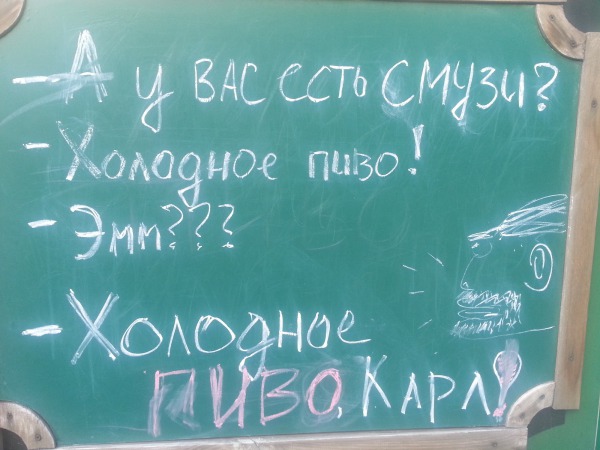 - А у ВАС есть СМУЗИ?
- Холодное пиво!
- Эмм???
- Холодное
ПИВО, КАРЛ!